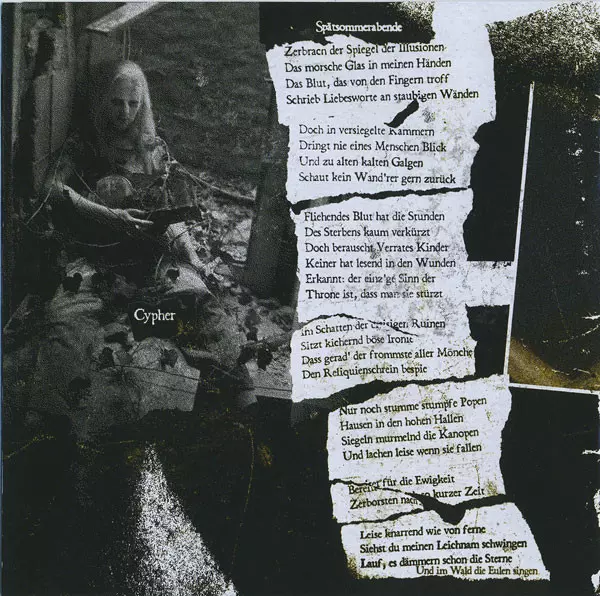 Spätsommerabende
Zerbrach der Spiegel der Illusionen
Das morsche Glas in meinen Händen
Das Blut, das von den Fingern troff
Schrieb Liebesworte an staubigen Wänden
Doch in versiegelte Kammern
Dringt nie eines Menschen Blick
Und zu alten kalten Galgen
Schaut kein Wand'rer gern zurück
Fliehendes Blut hat die Stunden
Des Sterbens kaum verkürzt
Doch berauscht Verrates Kinder
Keiner hat lesend in den Wunden
Erkannt: der einz'ge Sinn der
Throne ist, dass man sie stürzt
Im Schatten der Ruinen
Sitzt kichernd böse Ironie
Dass gerad' der frommste aller Mönche
Den Reliquienschrein bespie
Nur noch stumme stumpfe Popen
Hausen in den hohen Hallen
Siegeln murmelnd die Kanopen
Und lachen leise wenn sie fallen
Bereitet für die Ewigkeit
Zerborsten nach so kurzer Zeit
Leise knarrend wie von ferne
Siehst du meinen Leichnam schwingen
Lauf, es dämmern schon die Sterne
Und im Wald die Eulen singen
Cypher